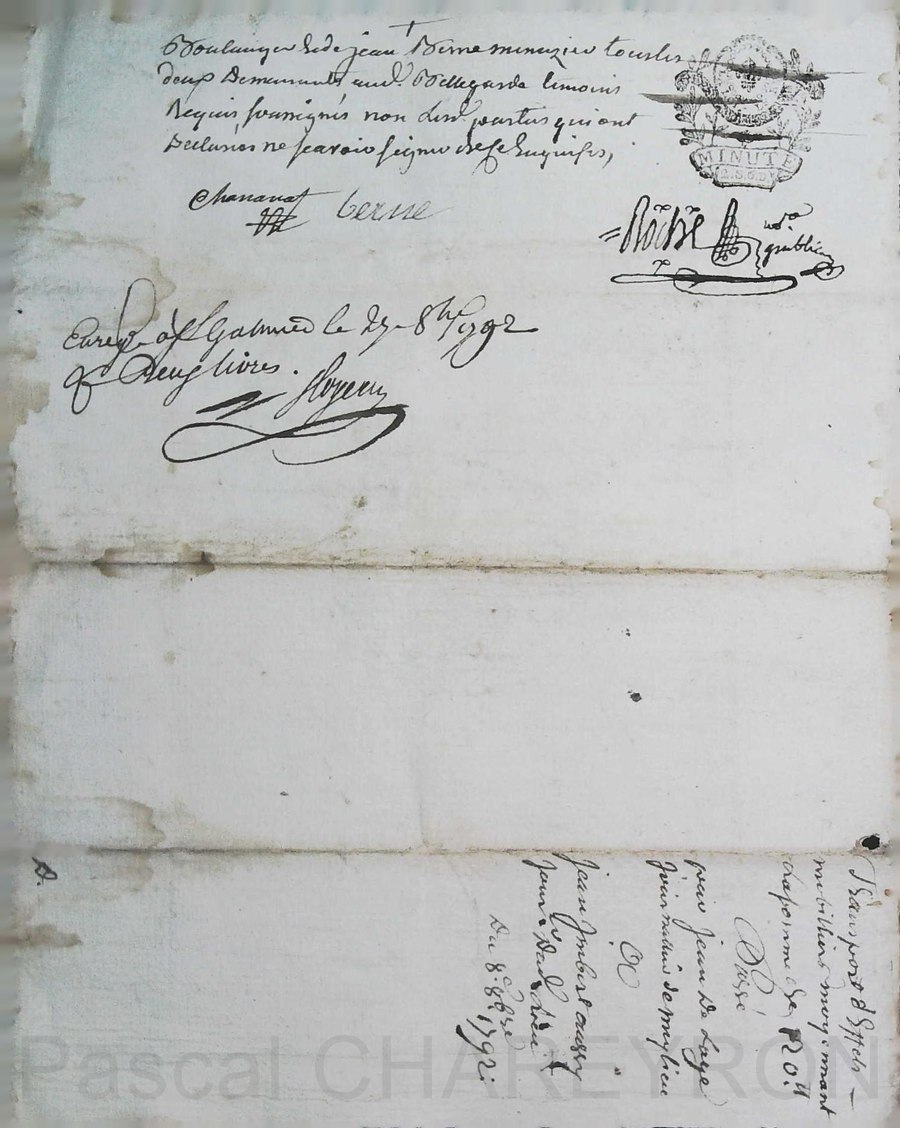 Boulanger & de jean Berne menuzier tous les
deux Demeurants aud. Bellegarde temoins
Requis soussignés non lesd. parties qui ont
Declarés ne scavoir signer de ce Enquises,
MINUTE
Chananat
berne
Roche
nre
publicq
Enreg. a St Galmier le 27 8bre 1792
R Deux livres.
Transport d'Effets
mobilliers moyennant
la somme de 120 #
Passé
par jean De Laye
journalier de
A
jean Imbert aussy
jour. Dud. Lieu
Du 8e 8bre
1792.
Pascal CHAREYRON